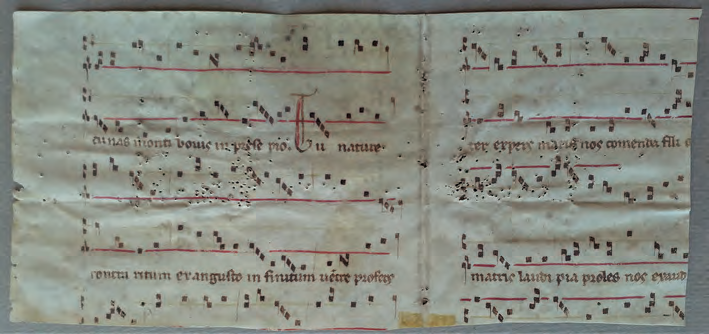 cunas in prese pio. Tu nature
contra ritum ex angusto in finitum uētre profers
ter expers maris nos comenda fili
matris laudi pia proles nos exaud